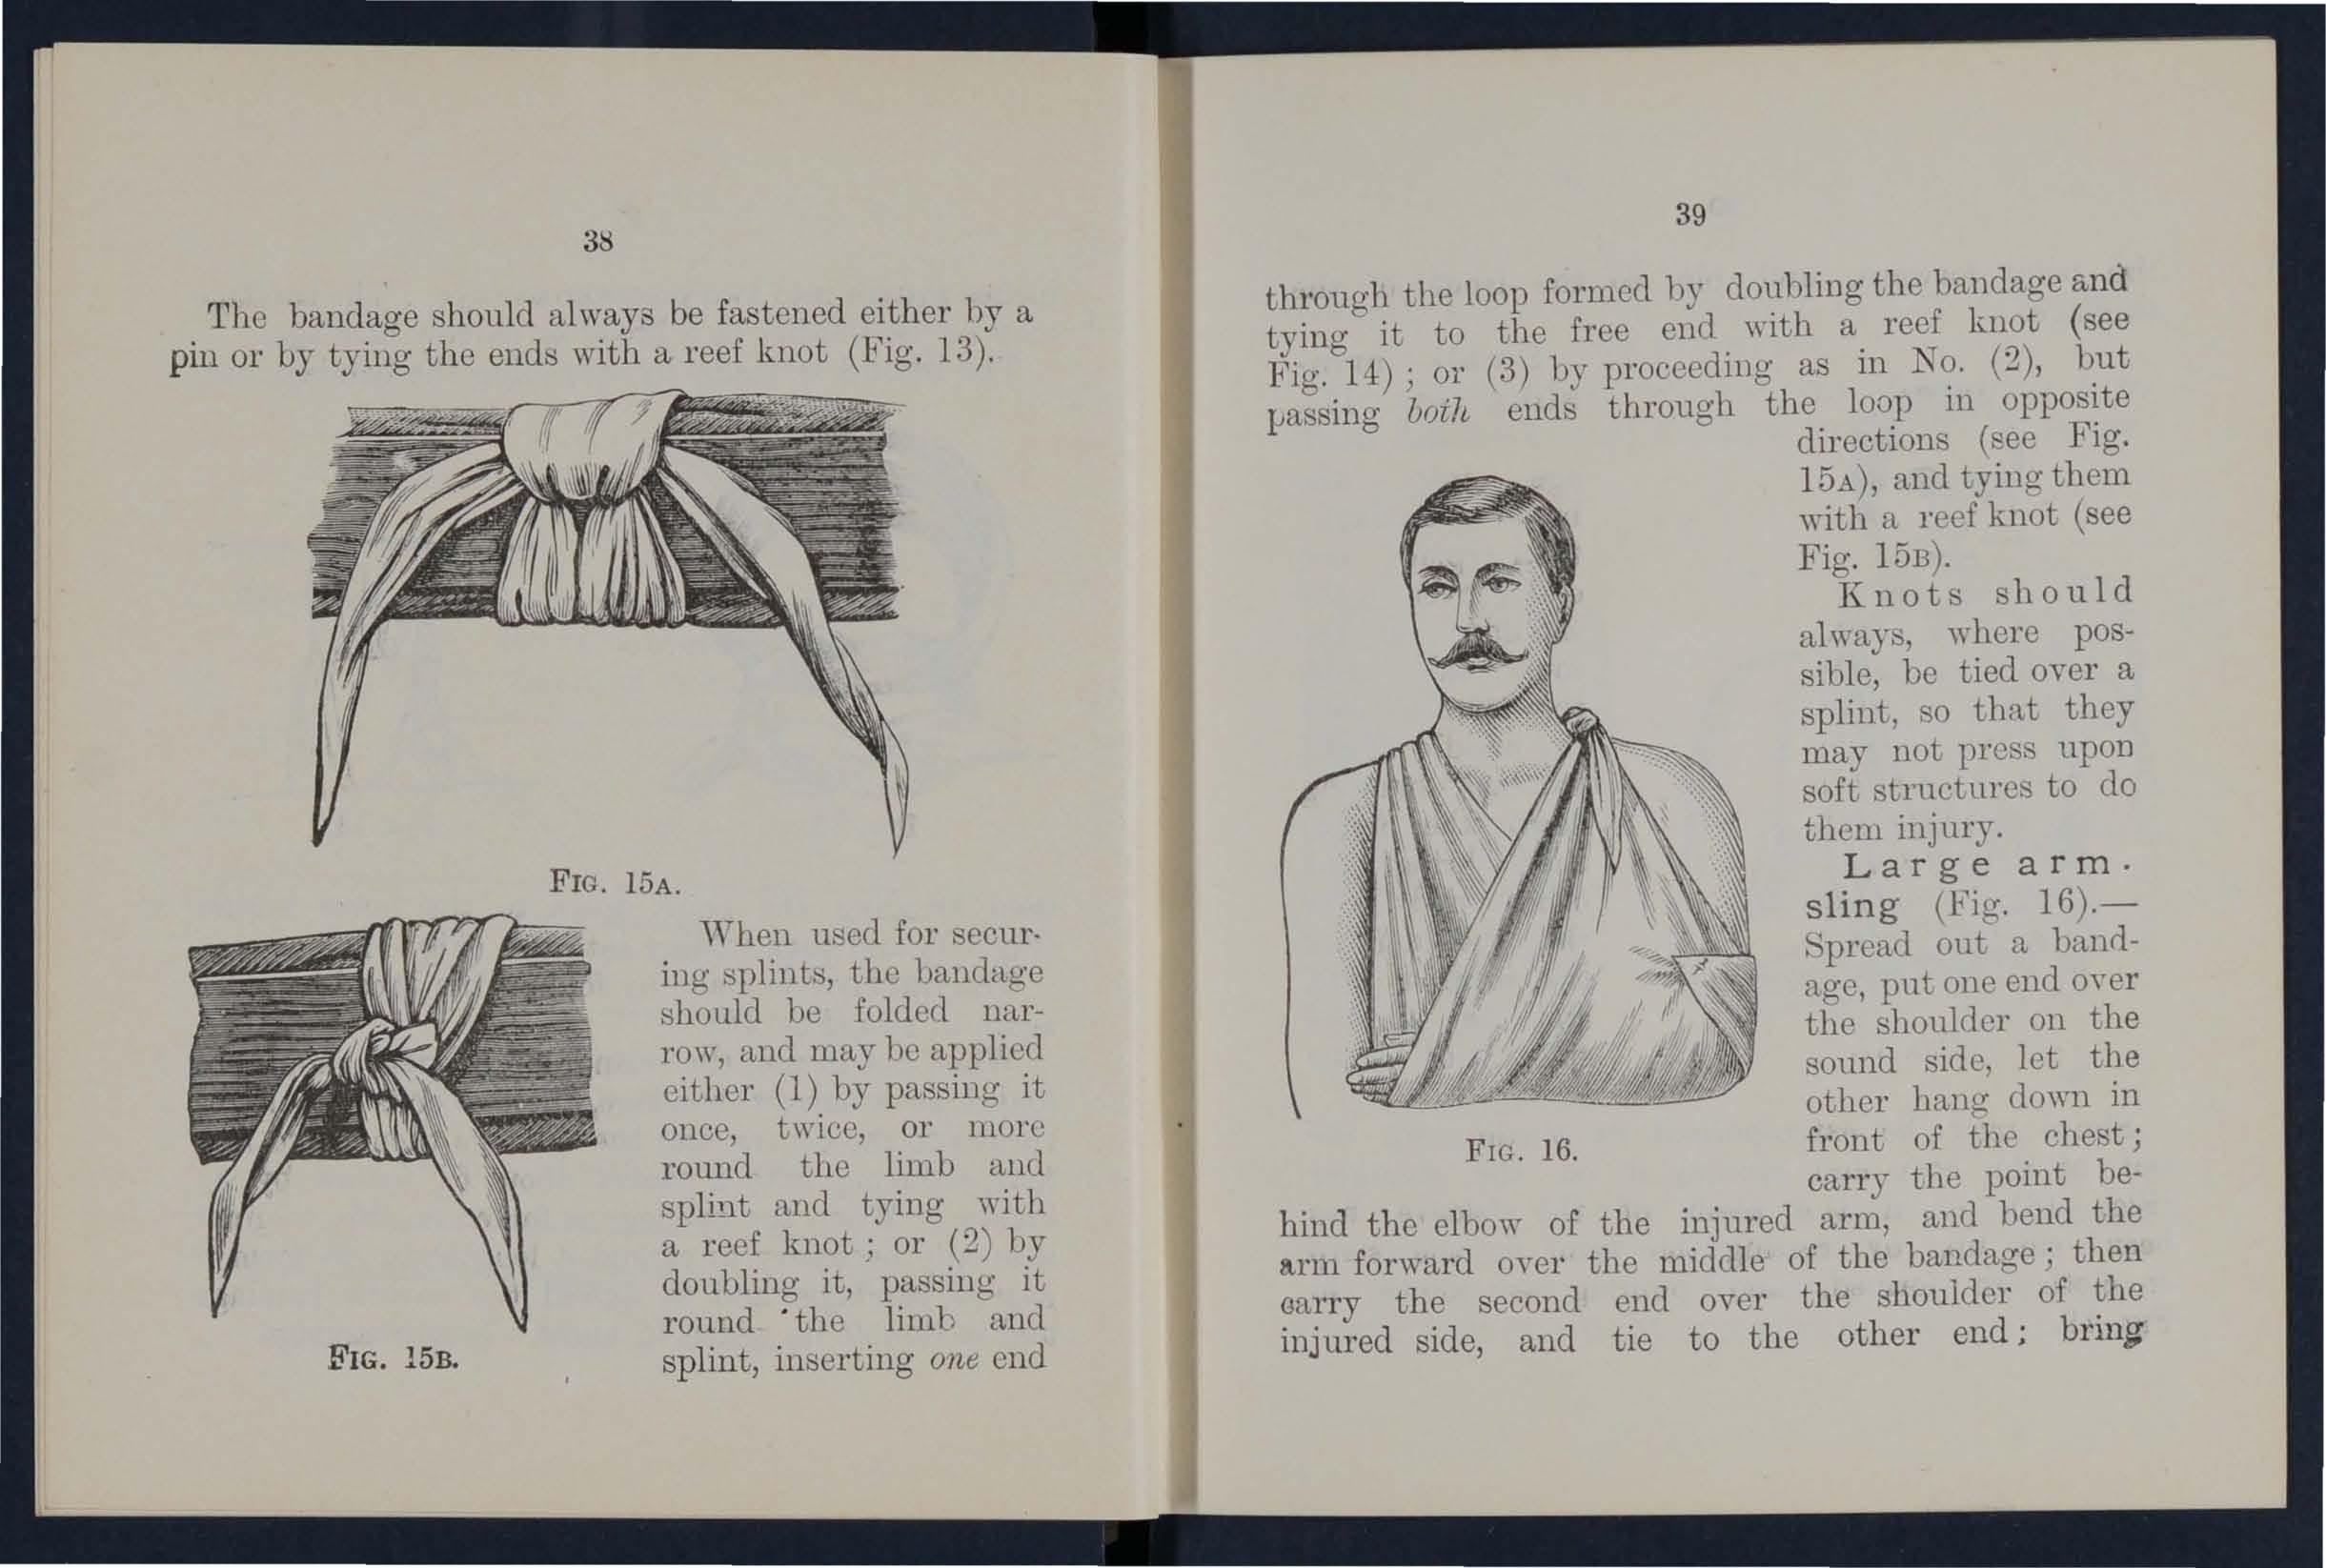 38
The bandage should always be fastened either by a
pin or by tying the ends with a reef knot (Fig. 13).
FIG. 15A.
When used for secur-
ing splints, the bandage
should be folded nar-
row, and may be applied
either (1) by passing it
once, twice, or more
round the limb and
splint and tying with
a reef knot ; or (2) by
doubling it, passing it
round the limb and
splint, inserting one end
FIG. 15B.
39
through the loop formed by doubling the bandage and
tying it to the free end with a reef knot (see
Fig. 14) ; or (3) by proceeding as in No. (2), but
passing both ends through the loop in opposite
directions (see Fig.
15A), and tying them
with a reef knot (see
Fig. 15B).
Knots should
always, where pos-
sible, be tied over a
splint, so that they
may not press upon
soft structures to do
them injury.
Large arm.
sling (Fig. 16).—
Spread out a band-
age, put one end over
the shoulder on the
sound side, let the
other hang down in
front of the chest ;
carry the point be-
FIG. 16.
hind the elbow of the injured arm, and bend the
arm forward over the middle of the bandage ; then
carry the second end over the shoulder of the
injured side, and tie to the other end ; bring